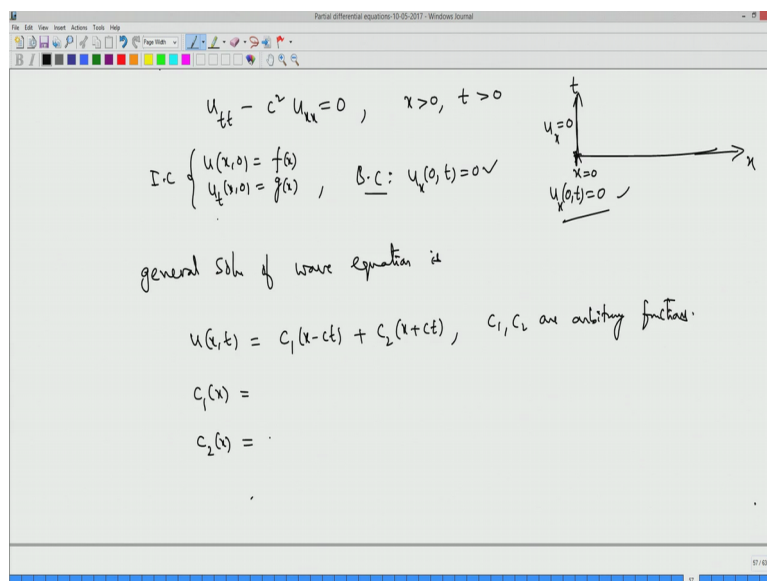 Partial differential equations-10-05-2017 - Windows Journal
File Edit View Insert Actions Tools Help
Page Width
B I
u_tt - c² u_xx = 0 , x>0, t>0
I.C { u(x,0) = f(x)
u_t(x,0) = g(x) , B.C: u_x(0,t)=0 ✓
t
u_x=0
x
x=0
u_x(0,t)=0 ✓
general soln of wave equation is
u(x,t) = C₁(x-ct) + C₂(x+ct), C₁, C₂ are arbitrary functions.
C₁(x) =
C₂(x) =
57 / 63
57